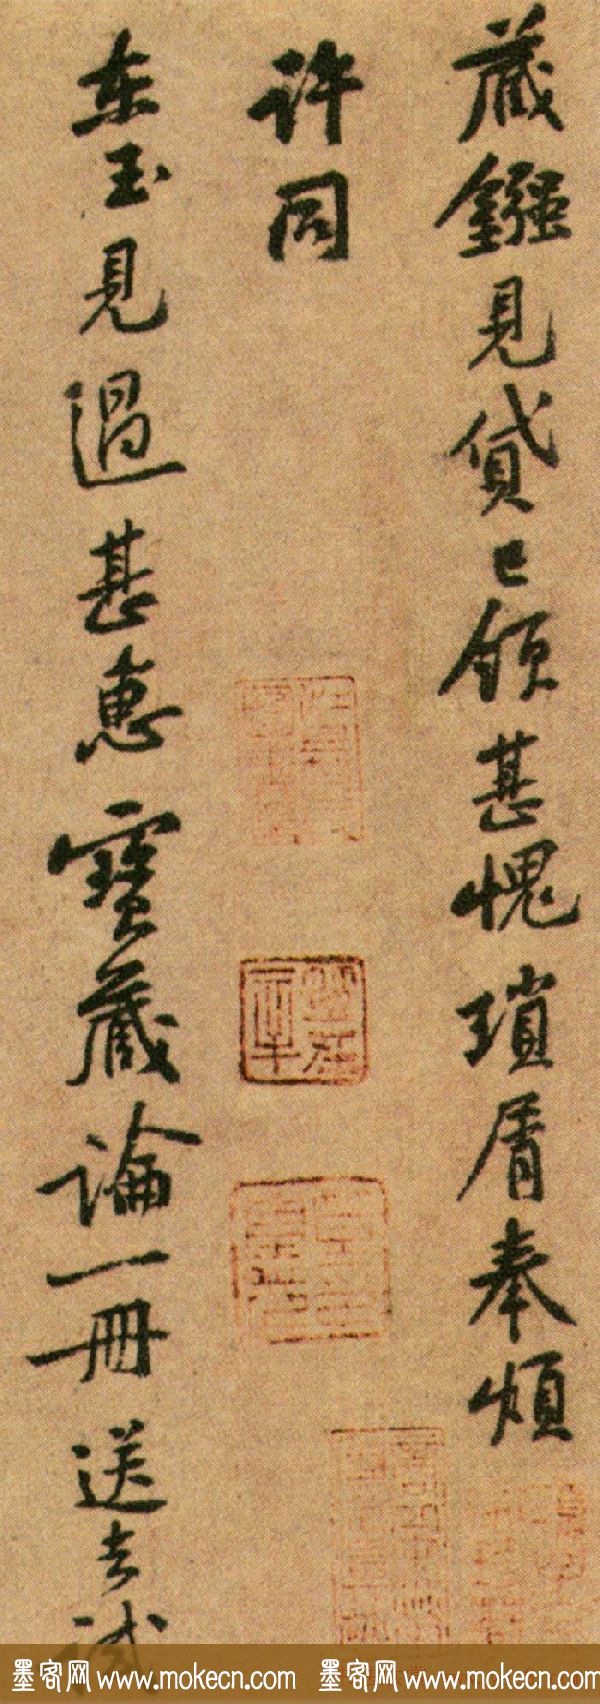 藏鏹見貸已領甚愧瑣屑奉煩
許同
东玉見過甚惠寶藏論一冊送去试
墨客网 www.mokecn.com 墨客网 www.mokecn.com